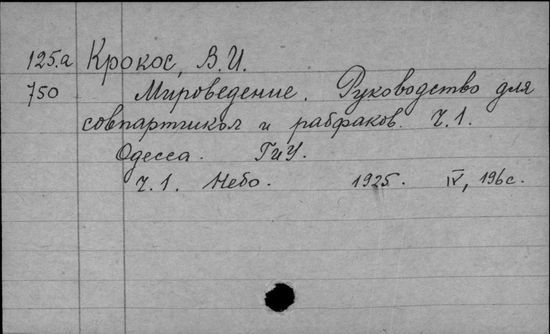 125.а Крокос, В.И.
750 Мироведение. Руководство для
совпартшкол и рабфаков. Ч.1.
Одесса. ГИУ.
Ч.1. Небо. 1925. IV, 196 с.